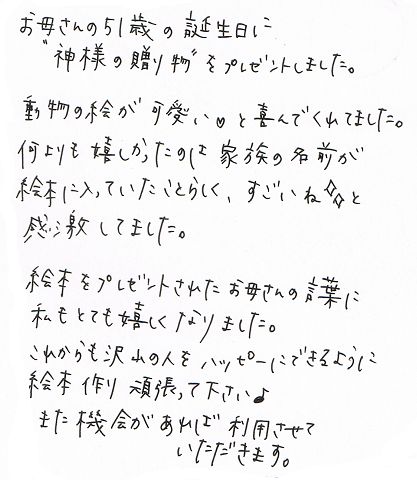 お母さんの51歳の誕生日に
"神様の贈り物"をプレゼントしました。
動物の絵が可愛い♡と喜んでくれてました。
何よりも嬉しかったのは家族の名前が
絵本に入っていたことらしく、すごいね✧✧と
感激してました。
絵本をプレゼントされたお母さんの言葉に
私もとても嬉しくなりました。
これからも沢山の人をハッピーにできるように
絵本作り頑張って下さい♪
また機会があれば利用させて
いただきます。